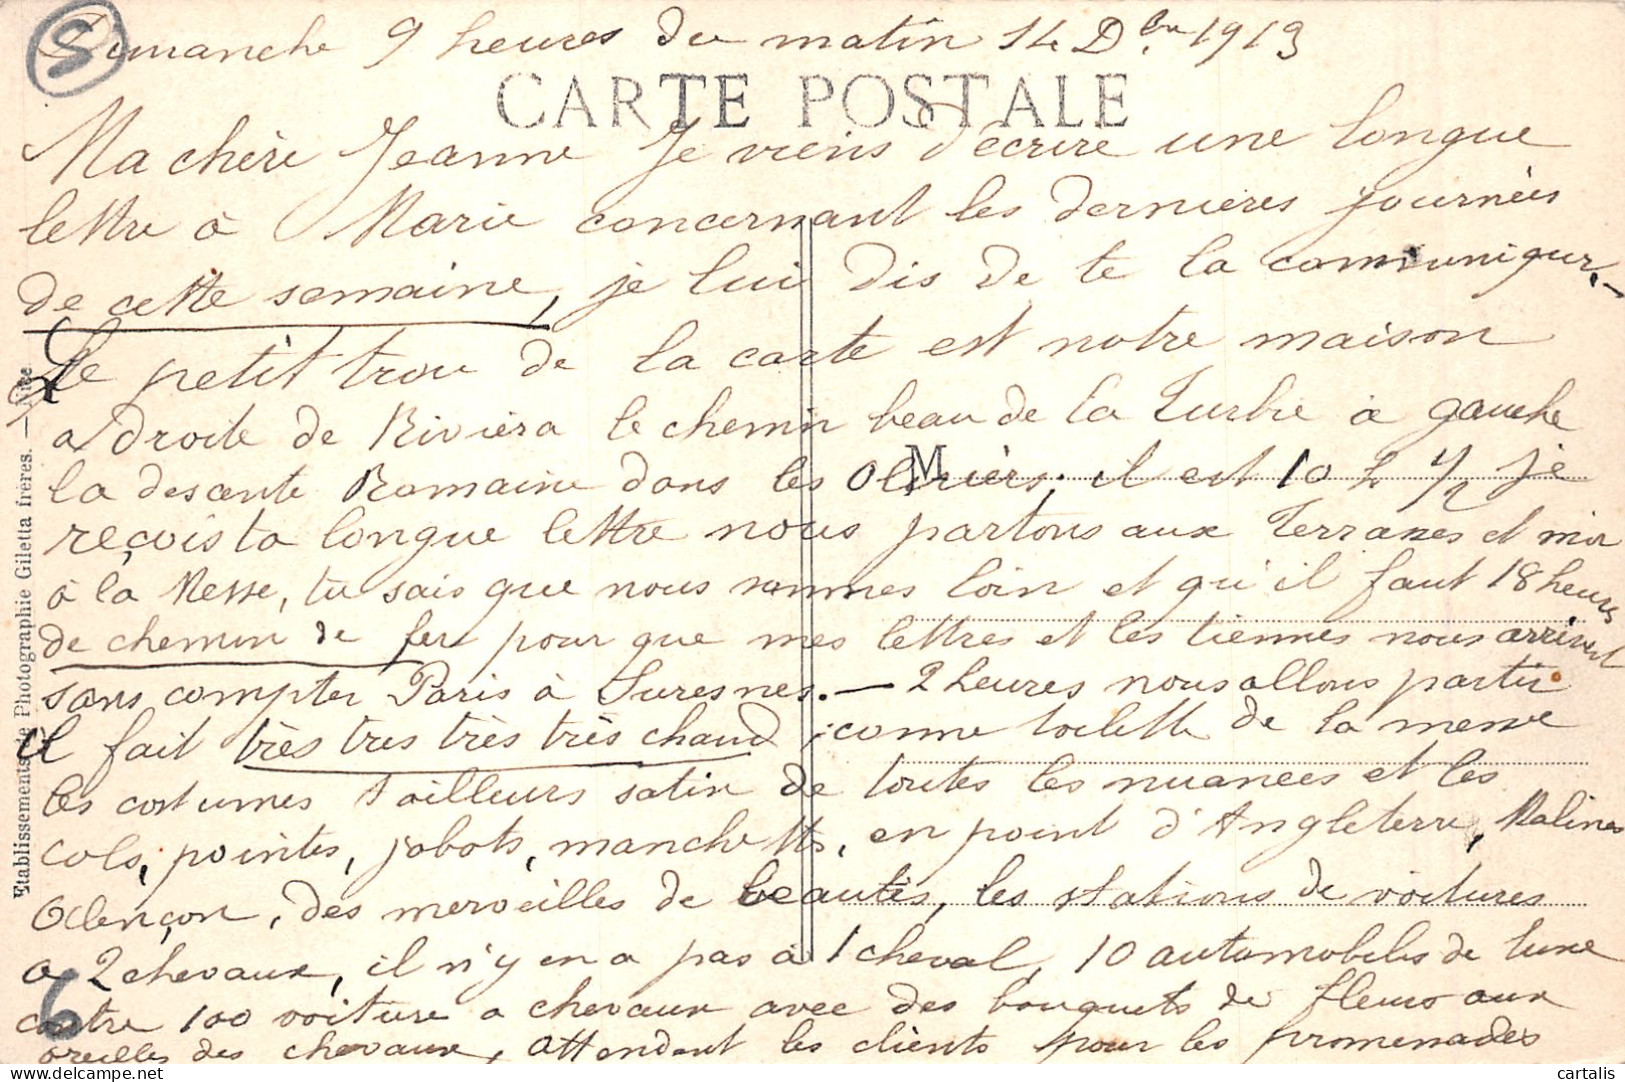 Dimanche 9 heures du matin 14 Dbre 1913
CARTE POSTALE
Ma chère Jeanne Je viens d'écrire une longue
lettre à Marie concernant les dernières journées
de cette semaine, je lui dis de te la communiquer.-
Le petit trou de la carte est notre maison
a droite de Riviera le chemin beau de la Turbie à gauche
la descente Romaine dans les Oliviers; il est 10 h 1/2 je
reçois ta longue lettre nous partons aux Terrasses et
à la Messe, tu sais que nous sommes loin et qu'il faut 18 heures
de chemin de fer pour que mes lettres et les tiennes nous arrivent
sans compter Paris à Suresnes. — 2 heures nous allons partir
il fait très tres très très chaud ; comme toilette de la messe
les costumes tailleurs satin de toutes les nuances et les
cols, pointes, jabots, manchettes, en point d'Angleterre, Malines
Alençon, des merveilles de beautés, les stations de voitures
a 2 chevaux, il n'y en a pas à 1 cheval, 10 automobiles de luxe
contre 100 voiture a chevaux avec des bouquets de fleurs aux
oreilles des chevaux, attendent les clients pour les promenades
Etablissements de Photographie Giletta frères. — Nice
M
S
6
cartalis